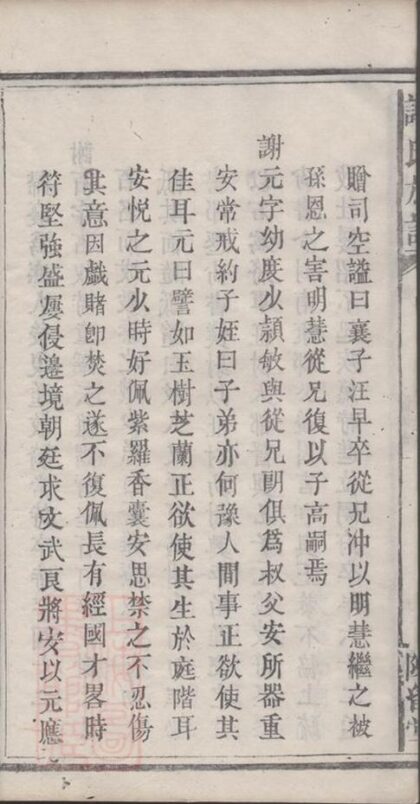 贈司空諡曰襄子汪早卒從兄沖以明慧繼之被
孫恩之害明慧從兄復以子高嗣焉
謝元字幼度少頴敏與從兄朗俱為叔父安所器重
安常戒約子姪曰子弟亦何豫人間事正欲使其
佳耳元曰譬如玉樹芝蘭正欲使其生於庭階耳
安悅之元少時好佩紫羅香囊安思禁之不忍傷
其意因戲賭卽焚之遂不復佩長有經國才畧時
符堅強盛屢侵邊境朝廷求文武良將安以元應